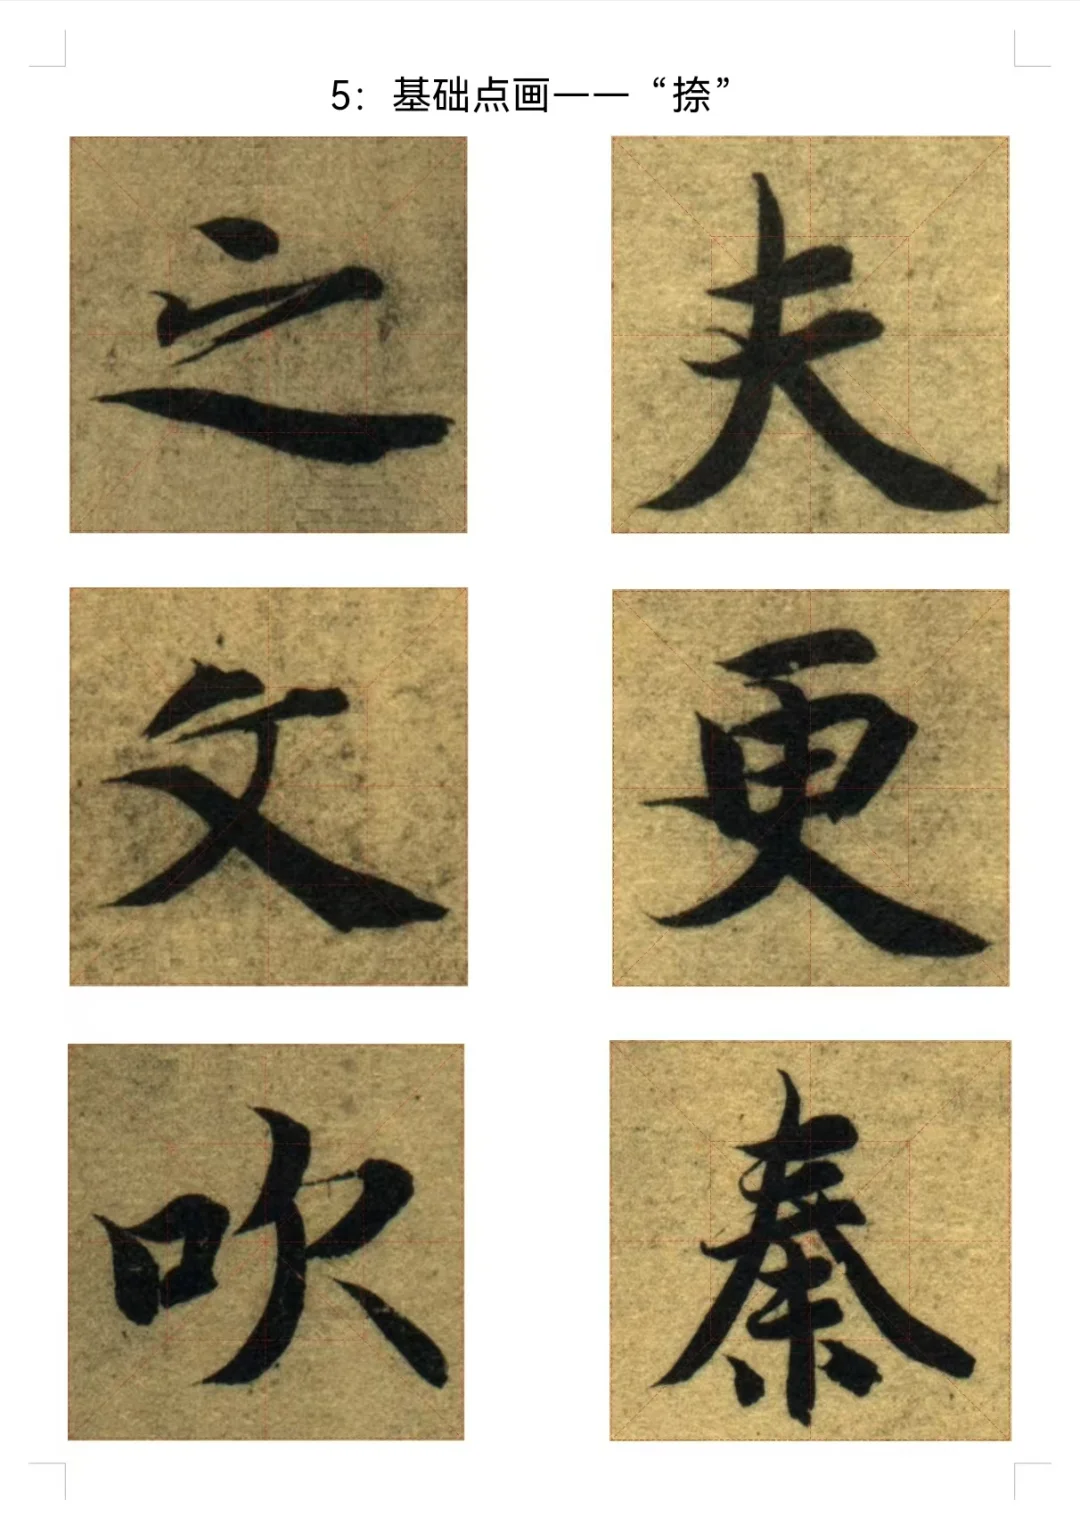 5：基础点画——“捺”
之 夫
文 更
吹 秦